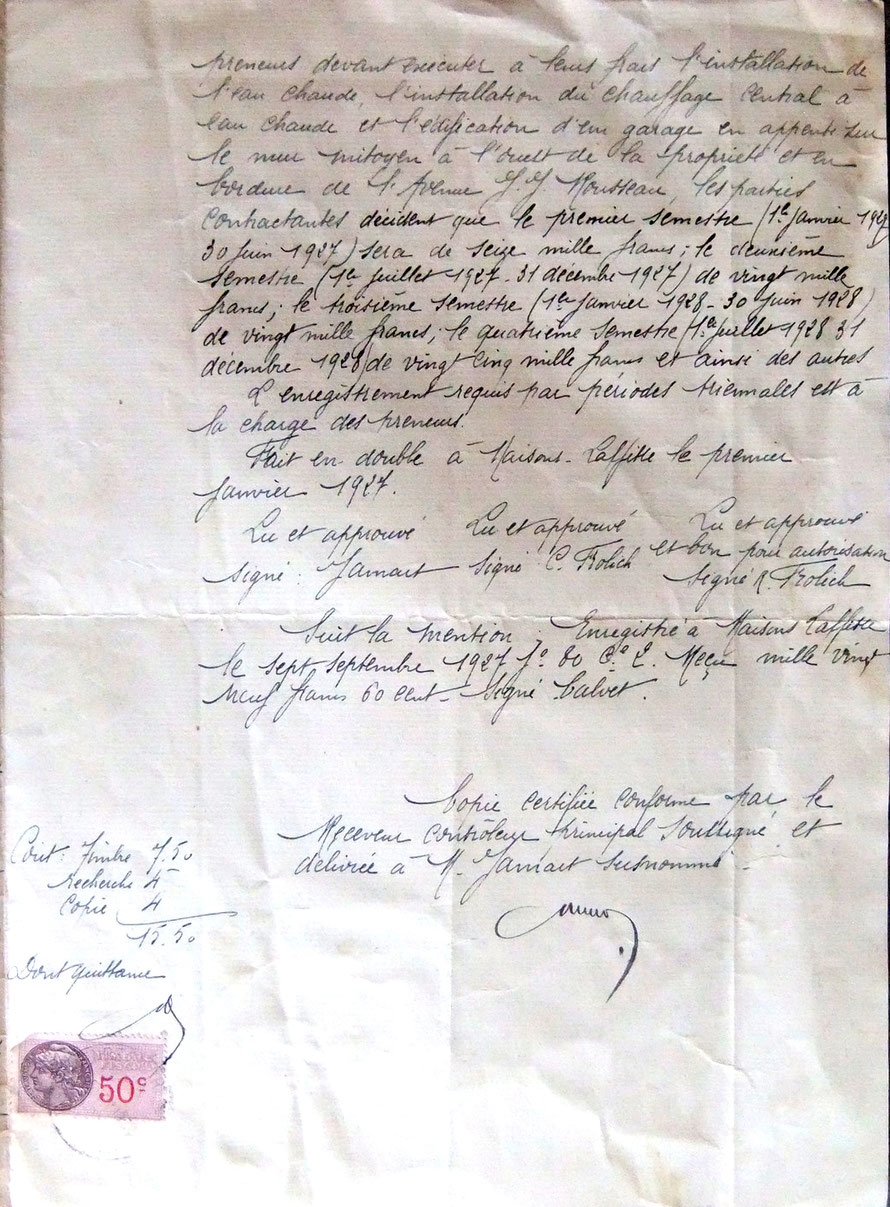 preneurs devant exécuter à leurs frais l'installation de
l'eau chaude, l'installation du chauffage central à
eau chaude et l'édification d'un garage en appentis sur
le mur mitoyen à l'ouest de la propriété et en
bordure de l'Avenue J.J Rousseau, les parties
contractantes décident que le premier semestre (1er janvier 1927
30 juin 1927) sera de seize mille francs; le deuxième
semestre (1er juillet 1927 - 31 décembre 1927) de vingt mille
francs; le troisième semestre (1er janvier 1928 - 30 juin 1928)
de vingt mille francs; le quatrième semestre (1er juillet 1928 31
décembre 1928) de vingt cinq mille francs et ainsi des autres
L'enregistrement requis par périodes triennales est à
la charge des preneurs.
Fait en double à Maisons-Laffitte le premier
Janvier 1927.
Lu et approuvé Lu et approuvé Lu et approuvé
et bon pour autorisation
signé: Jamart signé C. Frolich signé R. Frolich
Suit la mention; Enregistré à Maisons Laffitte
le sept septembre 1927 fo 80 Ce 2. Reçu mille vingt
neuf francs 60 cent - signé Calvet.
Copie certifiée conforme par le
Receveur Contrôleur principal soussigné et
délivrée à M. Jamart susnommé -
Cout: Timbre 7.50
Recherche 4
Copie 4
15.50
Dont quittance
50c